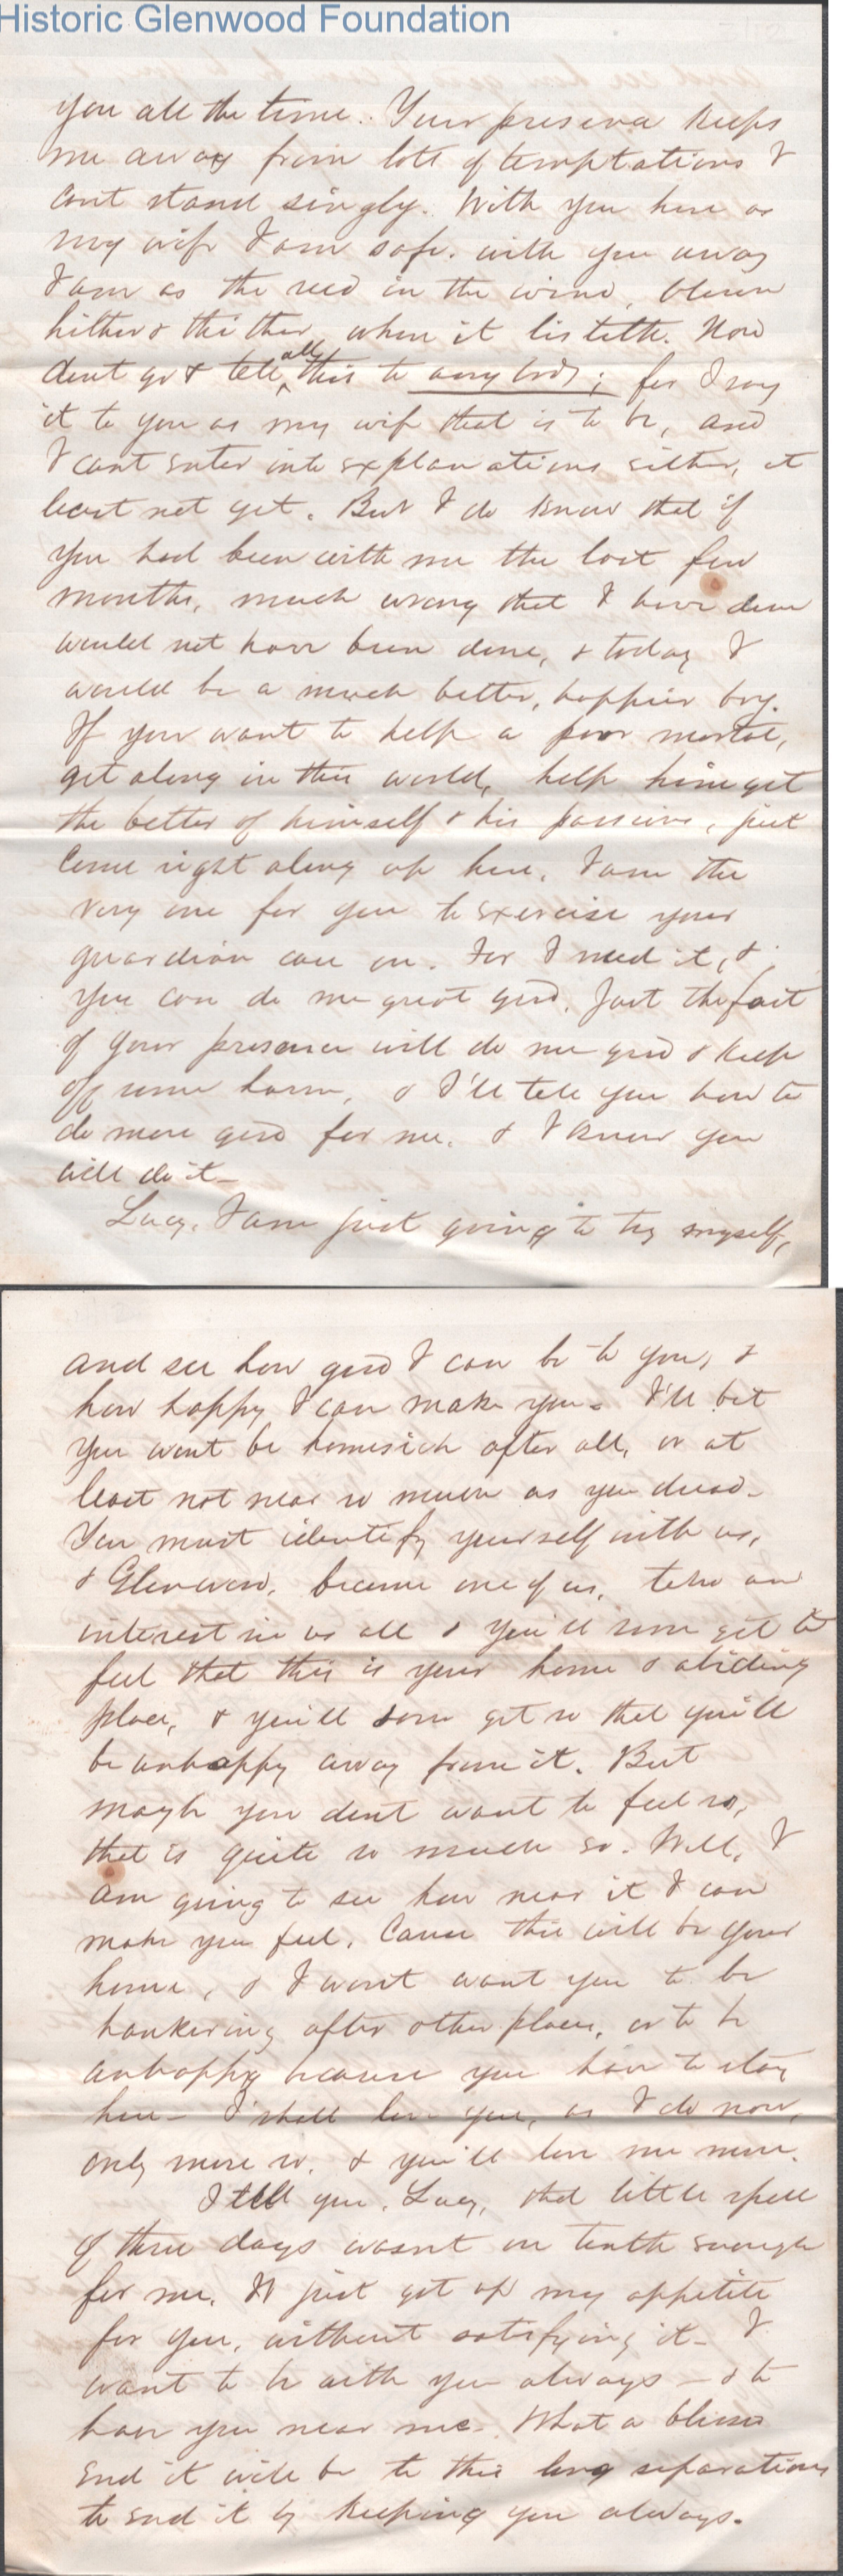 Historic Glenwood Foundation
you all the time. Your presence keeps
me away from lots of temptations I
cant stand singly. With you here as
my wife I am safe. with you away
I am as the reed in the wind, blown
hither & thither when it listeth. Now
dont go & tell all this to anybody; for I say
it to you as my wife that is to be, and
I cant enter into explanations either, at
least not yet. But I do know that if
you had been with me the last few
months, much wrong that I have done
would not have been done, & today I
would be a much better, happier boy.
If you want to help a poor mortal,
get along in this world, help him get
the better of himself & his passions, just
come right along up here. I am the
very one for you to exercise your
guardian care on. For I need it, &
you can do me great good. Just the fact
of your presence will do me good & keep
off some harm, & I'll tell you how to
do more good for me. & I know you
will do it –
Lucy. I am just going to try myself,
and see how good I can be to you, &
how happy I can make you. I'll bet
you wont be homesick after all, or at
least not near so much as you dread –
You must identify yourself with us,
& Glenwood, become one of us, take an
interest in us all & you'll soon get to
feel that this is your home & abiding
place, & you'll soon get so that you'll
be unhappy away from it. But
maybe you dont want to feel so,
that is quite so much so. Well, I
am going to see how near it I can
make you feel. Cause this will be your
home, & I wont want you to be
hankering after other places, or to be
unhappy because you have to stay
here – I shall love you, as I do now,
only more so. & you'll love me more.
I tell you, Lucy, that little spell
of three days wasnt one tenth enough
for me. It just got up my appetite
for you, without satisfying it – I
want to be with you always – & to
have you near me – What a blessed
end it will be to this long separation
to end it by keeping you always.